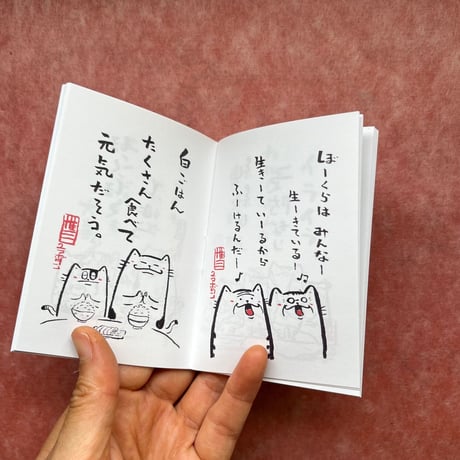 ぼーくらは みんなー
生ーきているー♪
生きーて いーるから
ふーけるんだー♪
白ごはん
たくさん食べて
元気だそう。